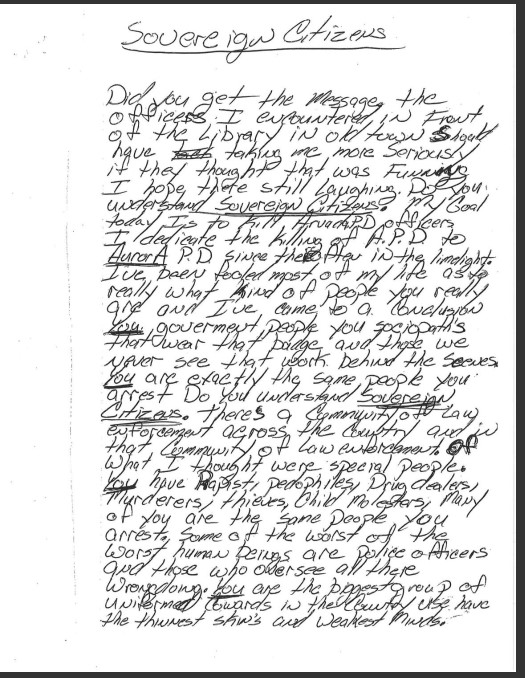 Sovereign Citizens
Did you get the Message, the
officers I encountered, in Front
of the Library in old town Should
have taking me more Serious,
if they thought that was Funny
I hope there still Laughing. Do you
understand Sovereign Citizens. My Goal
today Is to Kill Arvada PD officers,
I dedicate the killing of A.P.D to
AurorA P.D since the often in the limelight.
I've been fooled most of my life as to
really what kind of people you really
are and I've come to a conclusion
You government people you sociopath's
that wear that badge, and those we
never see that work behind the Scenes.
You are exactly the same people you
arrest Do you understand Sovereign
Citizens. there's a Community of Law
enforcement across the Country and in
that Community of Law enforcement. of
what I thought were special people.
You have Rapist, pedophiles, Drug dealers,
Murderers, thieves, Child Molesters, Many
of you are the same people you
arrest, some of the worst of the
worst human beings are police officers
and those who oversee all there
wrongdoing. You are the biggest group of
uniformed Cowards in the Country use have
the thinnest skin's and weakest Minds.